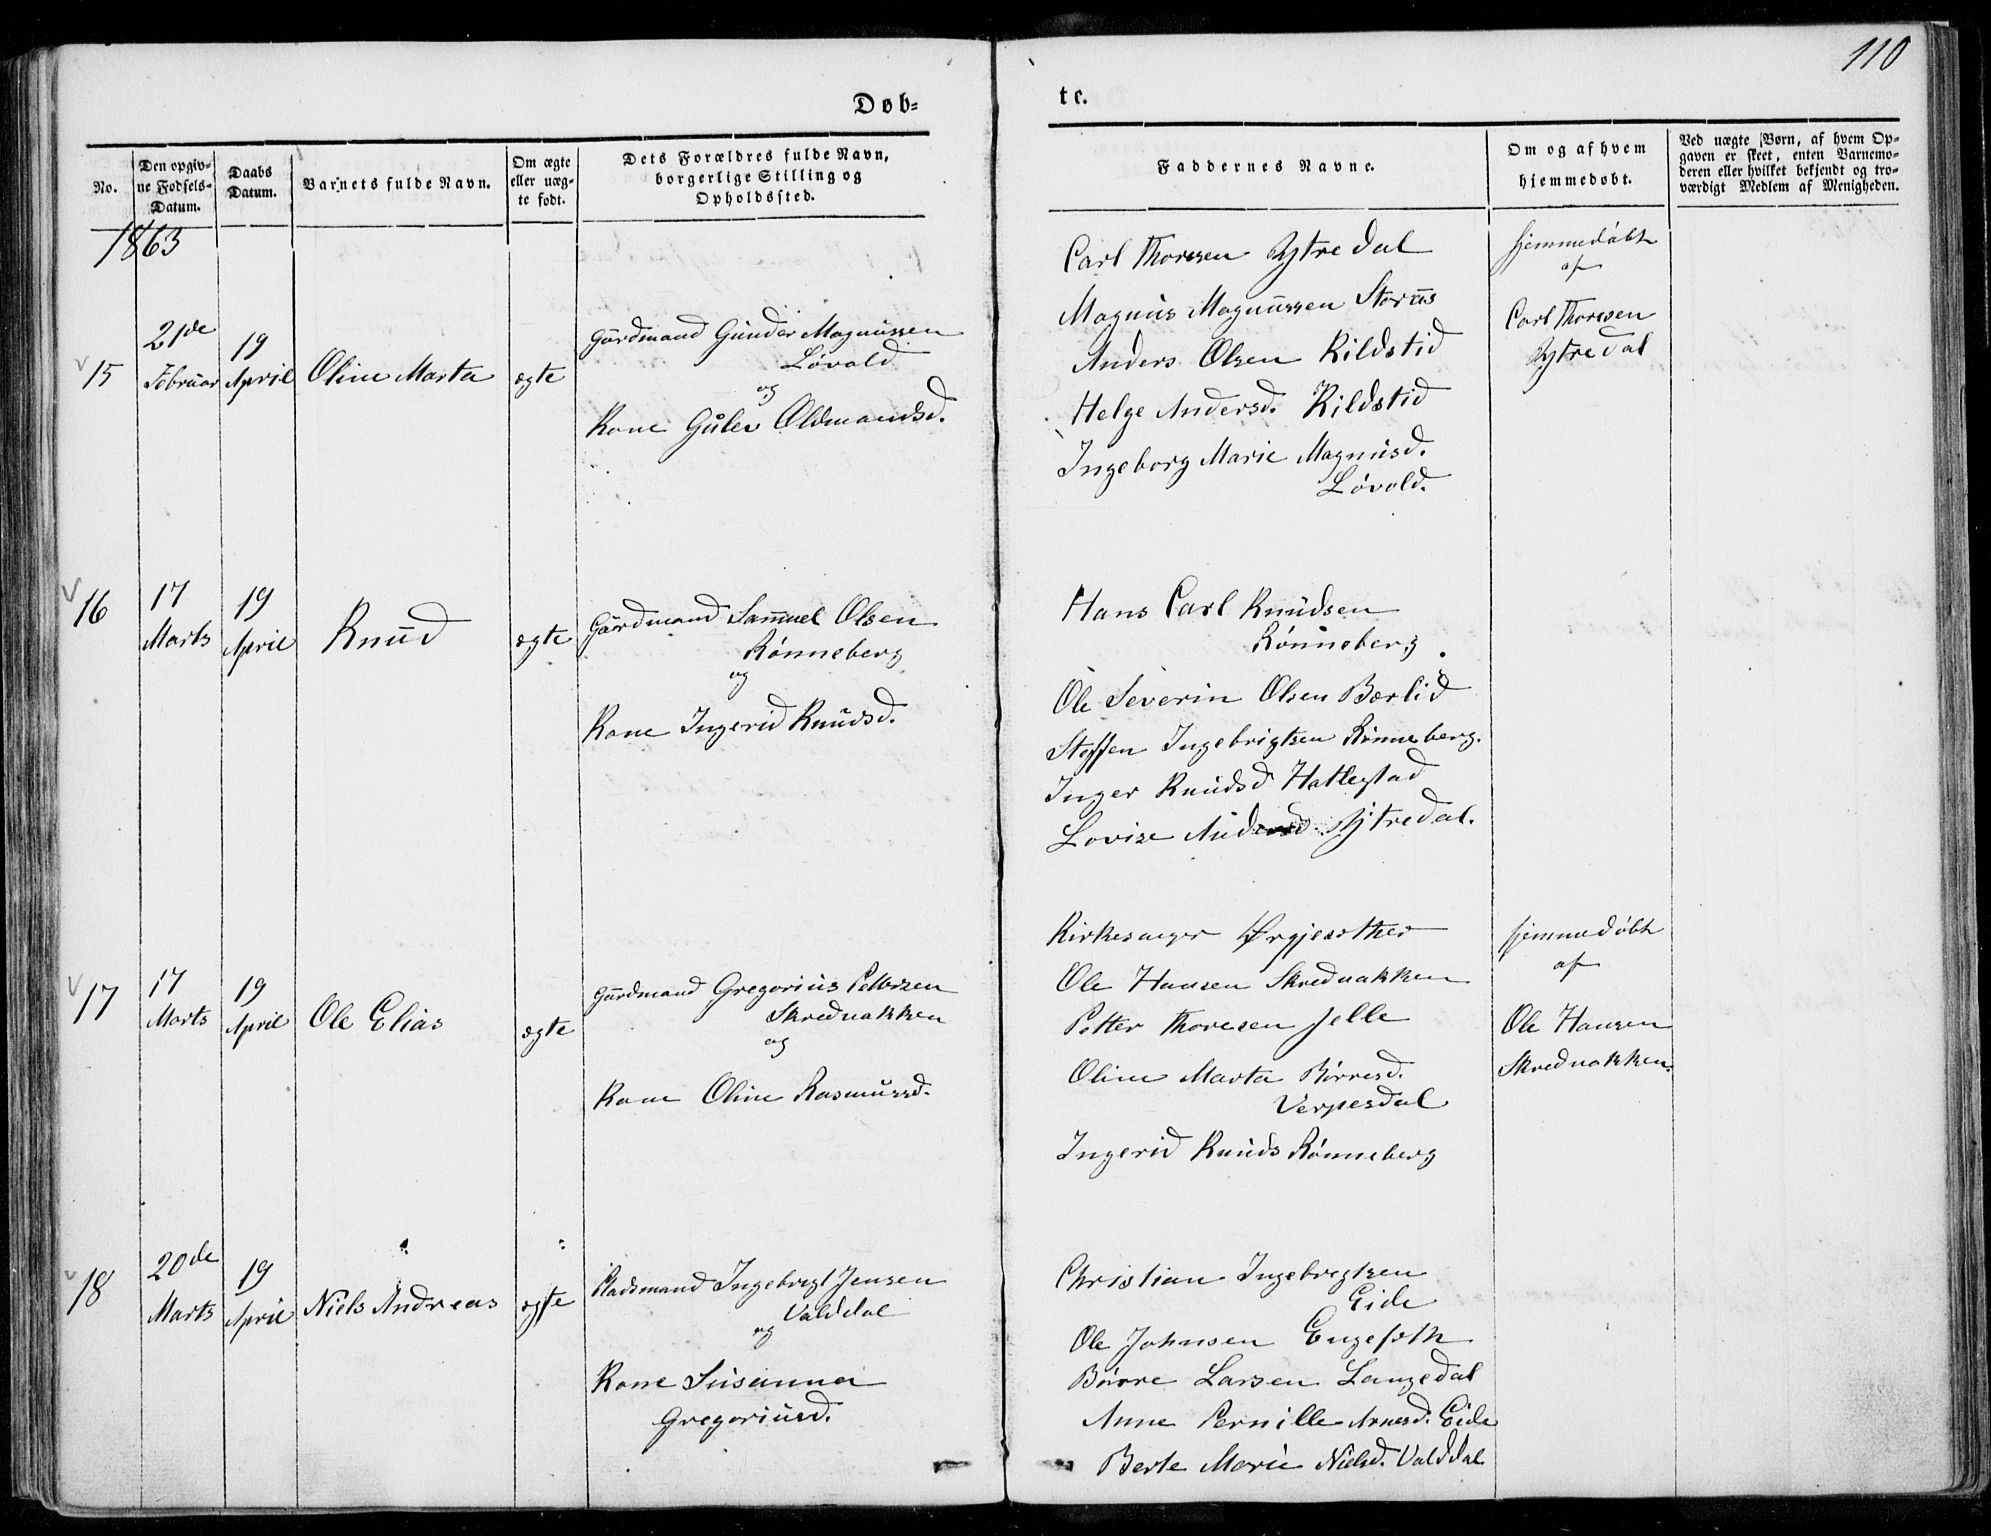 110
Døb-
te.
No.
Den opgiv-
ne Fødsels-
Datum.
Daabs
Datum.
Barnets fulde Navn.
Om ægte
eller uæg-
te født.
Dets Forældres fulde Navn,
borgerlige Stilling og
Opholdssted.
Faddernes Navne.
Om og af hvem
hjemmedøbt.
Ved uægte Børn, af hvem Op-
gaven er skeet, enten Barnemo-
deren eller hvilket bekjendt og tro-
værdigt Medlem af Menigheden.
1863
15
21de
Februar
19
April
Oline Marta
ægte
Gårdmand Gunder Magnussen
Løvold
og
Kone Gulev Oldmandsd.
Carl Thoresen Yttredal
Magnus Magnussen Storås
Anders Olsen Kildstid
Helge Andersd. Kildstid
Ingeborg Marie Magnusd.
Løvold.
hjemmedøbt
af
Carl Thoresen
Yttredal
16
17
Marts
19
April
Knud
ægte
Gårdmand Samuel Olsen
Rønneberg
og
Kone Ingerid Knudsd.
Hans Carl Knudsen
Rønneberg.
Ole Severin Olsen Bærlid
Steffen Ingebrigtsen Rønneberg.
Inger Knudsd Hatlestad
Lovise Andersd Yttredal.
17
17
Marts
19
April
Ole Elias
ægte
Gårdmand Gregorius Pettersen
Skrednakken
og
Kone Oline Rasmussd.
Kirkesanger
Ole Hansen Skrednakken
Petter Thoresen Jelle
Oline Marta Børresd.
Verpesdal
Ingerid Knuds Rønneberg
hjemmedøbt
af
Ole Hansen
Skrednakken.
18
20de
Marts
19
April
Niels Andreas
ægte
Pladsmand Ingebrigt Jensen
Valddal
og
Kone Susanna
Gregoriusd.
Christian Ingebregtsen
Eide
Ole Johnsen Engeseth
Børre Larsen Langedal
Anne Pernille Arnesd. Eide
Berte Marie Nielsd. Valddal